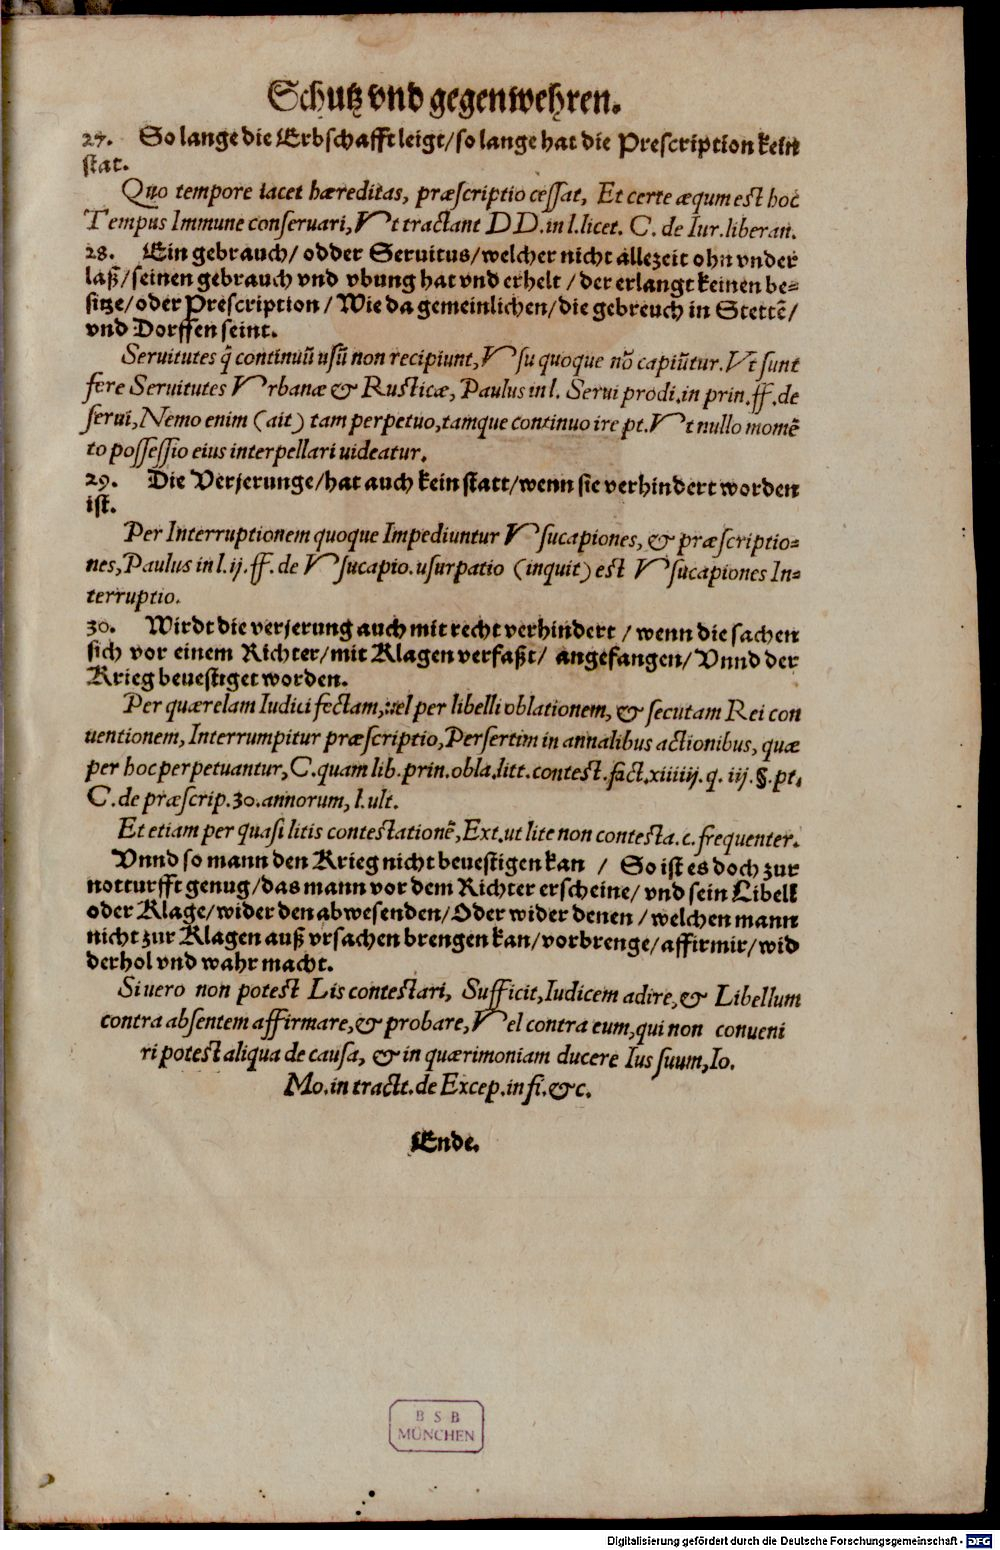 Schutz vnd gegenwehren.
27. So lange die Erbschafft leigt/so lange hat die Prescription kein
stat.
Quo tempore iacet hæreditas, præscriptio cessat, Et certe æqum est hoc
Tempus Immune conseruari, Vt tractant DD. in l. licet. C. de Iur. liberan.
28. Ein gebrauch/ odder Seruitus/welcher nicht allezeit ohn vnder
laß/seinen gebrauch vnd vbung hat vnd erhelt / der erlangt keinen be-
sitze/oder Prescription / Wie da gemeinlichen/die gebreuch in Stettẽ/
vnd Dorffen seint.
Seruitutes q̃ continuũ usũ non recipiunt, Vsu quoque nõ capiũtur. Vt sunt
fere Seruitutes Vrbanæ & Rusticæ, Paulus in l. Serui prodi. in prin. ff. de
serui, Nemo enim (ait) tam perpetuo, tamque continuo ire pt. Vt nullo momẽ
to possessio eius interpellari uideatur.
29. Die Verjerunge/hat auch kein statt/wenn sie verhindert worden
ist.
Per Interruptionem quoque Impediuntur Vsucapiones, & præscriptio-
nes, Paulus in l. ij. ff. de Vsucapio. usurpatio (inquit) est Vsucapiones In-
terruptio.
30. Wirdt die verjerung auch mit recht verhindert / wenn die sachen
sich vor einem Richter/mit Klagen verfaßt/ angefangen/ Vnnd der
Krieg beuestiget worden.
Per quærelam Iudici fectam, uel per libelli oblationem, & secutam Rei con
uentionem, Interrumpitur præscriptio, Persertim in annalibus actionibus, quæ
per hoc perpetuantur, C. quam lib. prin. obla. litt. contest. fact. xiiiij. q. iij. §. pt.
C. de præscrip. 30. annorum, l. ult.
Et etiam per quasi litis contestationẽ, Ext. ut lite non contesta. c. frequenter.
Vnnd so mann den Krieg nicht beuestigen kan / So ist es doch zur
notturfft genug/das mann vor dem Richter erscheine/ vnd sein Libell
oder Klage/wider den abwesenden/Oder wider denen / welchen mann
nicht zur Klagen auß vrsachen brengen kan/vorbrenge/affirmir/wid
derhol vnd wahr macht.
Si uero non potest Lis contestari, Sufficit, Iudicem adire, & Libellum
contra absentem affirmare, & probare, Vel contra eum, qui non conueni
ri potest aliqua de causa, & in quærimoniam ducere Ius suum, Io.
Mo. in tractt. de Excep. in fi. &c.
Ende.
BSB
MÜNCHEN
Digitalisierung gefördert durch die Deutsche Forschungsgemeinschaft - DFG